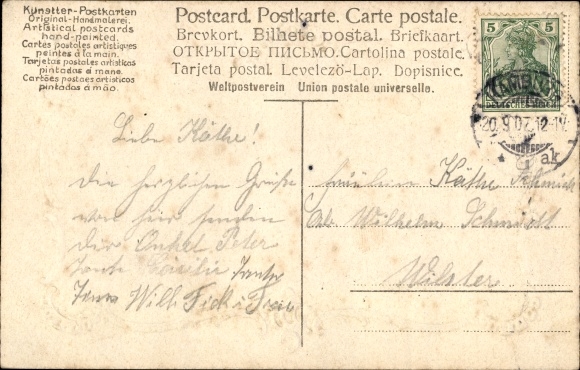 Künstler-Postkarten
Original-Handmalerei.
Artistical postcards
hand-painted.
Cartes postales artistiques
peintes à la main.
Tarjetas postales artisticas
pintadas a mano.
Cartões postaes artisticos
pintados à mão.
Postcard. Postkarte. Carte postale.
Brevkort. Bilhete postal. Briefkaart.
ОТКРЫТОЕ ПИСЬМО. Cartolina postale.
Tarjeta postal. Levelező-Lap. Dopisnice.
Weltpostverein Union postale universelle.
5 5
20.9.07. 12-1V.
Liebe Käthe!
Die herzlichen Grüße
von hier senden
Dir Onkel Peter
Tante Tante
Willi
Fräulein Käthe Schmidt
Wilhelm Schmidt
Wilster